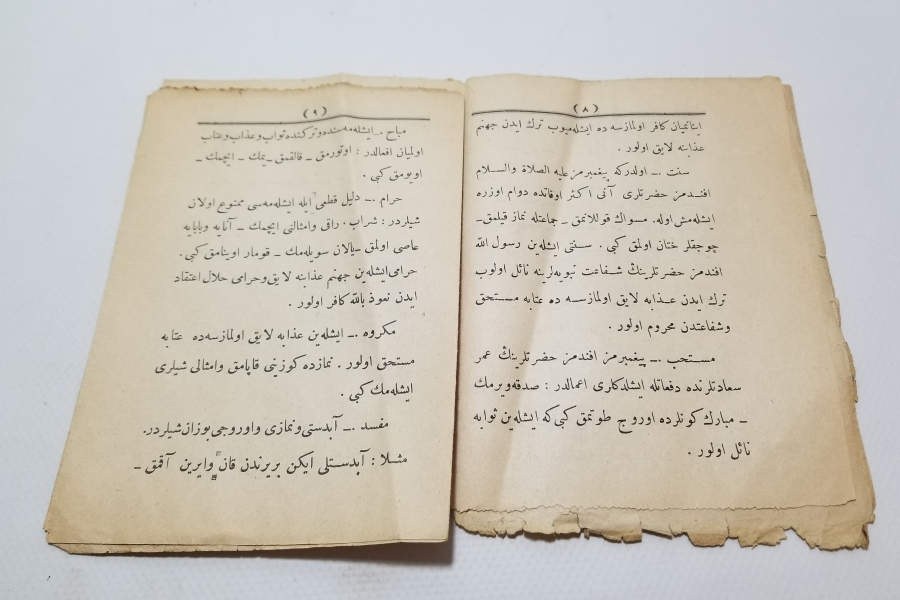 (٨)
اینانمیان کافر اولمازسه ده ایشله میوب ترك ایدن جهنم
عذابنه لایق اولور .
سنت ــ اولدرکه پیغمبرمز علیه الصلاة والسلام
افندمز حضرتلری آنی اکثر اوقاتده دوام اوزره
ایشله مش اوله . مسواك قوللانمق ــ جماعتله نماز قیلمق ــ
چوجقلر ختان اولمق کبی . سنتی ایشله ین رسول الله
افندمز حضرتلرینڭ شفاعت نبویه لرینه نائل اولوب
ترك ایدن عذابه لایق اولمازسه ده عتابه مستحق
وشفاعتدن محروم اولور .
مستحب ــ پیغمبرمز افندمز حضرتلرینڭ عمر
سعادتلرنده دفعاتله ایشلدکلری اعمالدر : صدقه ویرمك
ــ مبارك کونلرده اوروج طوتمق کبی که ایشله ین ثوابه
نائل اولور .
(٩)
مباح ــ ایشله مه سنده وترکنده ثواب وعذاب وعتاب
اولمیان افعالدر : اوتورمق ــ قالقمق ــ یمك ــ ایچمك ــ
اویومق کبی .
حرام ــ دلیل قطعی ایله ایشله مه سی ممنوع اولان
شیلردر : شراب . راقی وامثالنی ایچمك ــ آنایه وبابایه
عاصی اولمق ــ یالان سویله مك ــ قومار اوینامق کبی .
حرامی ایشله ین جهنم عذابنه لایق وحرامی حلال اعتقاد
ایدن نعوذ بالله کافر اولور .
مکروه ــ ایشله ین عذابه لایق اولمازسه ده عتابه
مستحق اولور . نمازده کوزینی قاپامق وامثالی شیلری
ایشله مك کبی .
مفسد ــ آبدستی ونمازی واوروجی بوزان شیلردر .
مثلا : آبدستلی ایکن بریرندن قان وایرین آقمق ــ